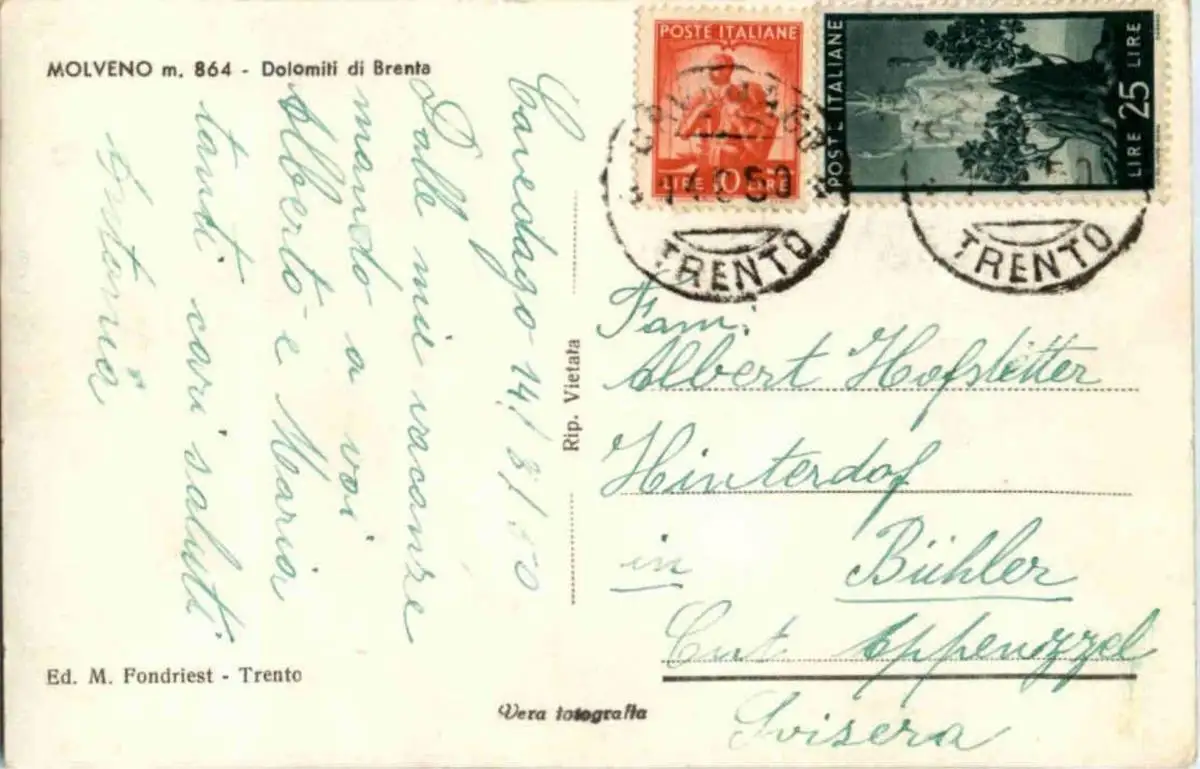 MOLVENO m. 864 - Dolomiti di Brenta
Cavedago 14/8/50
Dalle mie vacanze
mando a voi
Alberto e Maria
tanti cari saluti
Antonia
Ed. M. Fondriest - Trento
Rip. Vietata
Vera fotografia
POSTE ITALIANE
LIRE 10 LIRE
POSTE ITALIANE
LIRE 25 LIRE
TRENTO
TRENTO
Fam.
Albert Hofstetter
Hinterdof
in Bühler
Cant Appenzzel
Svisera